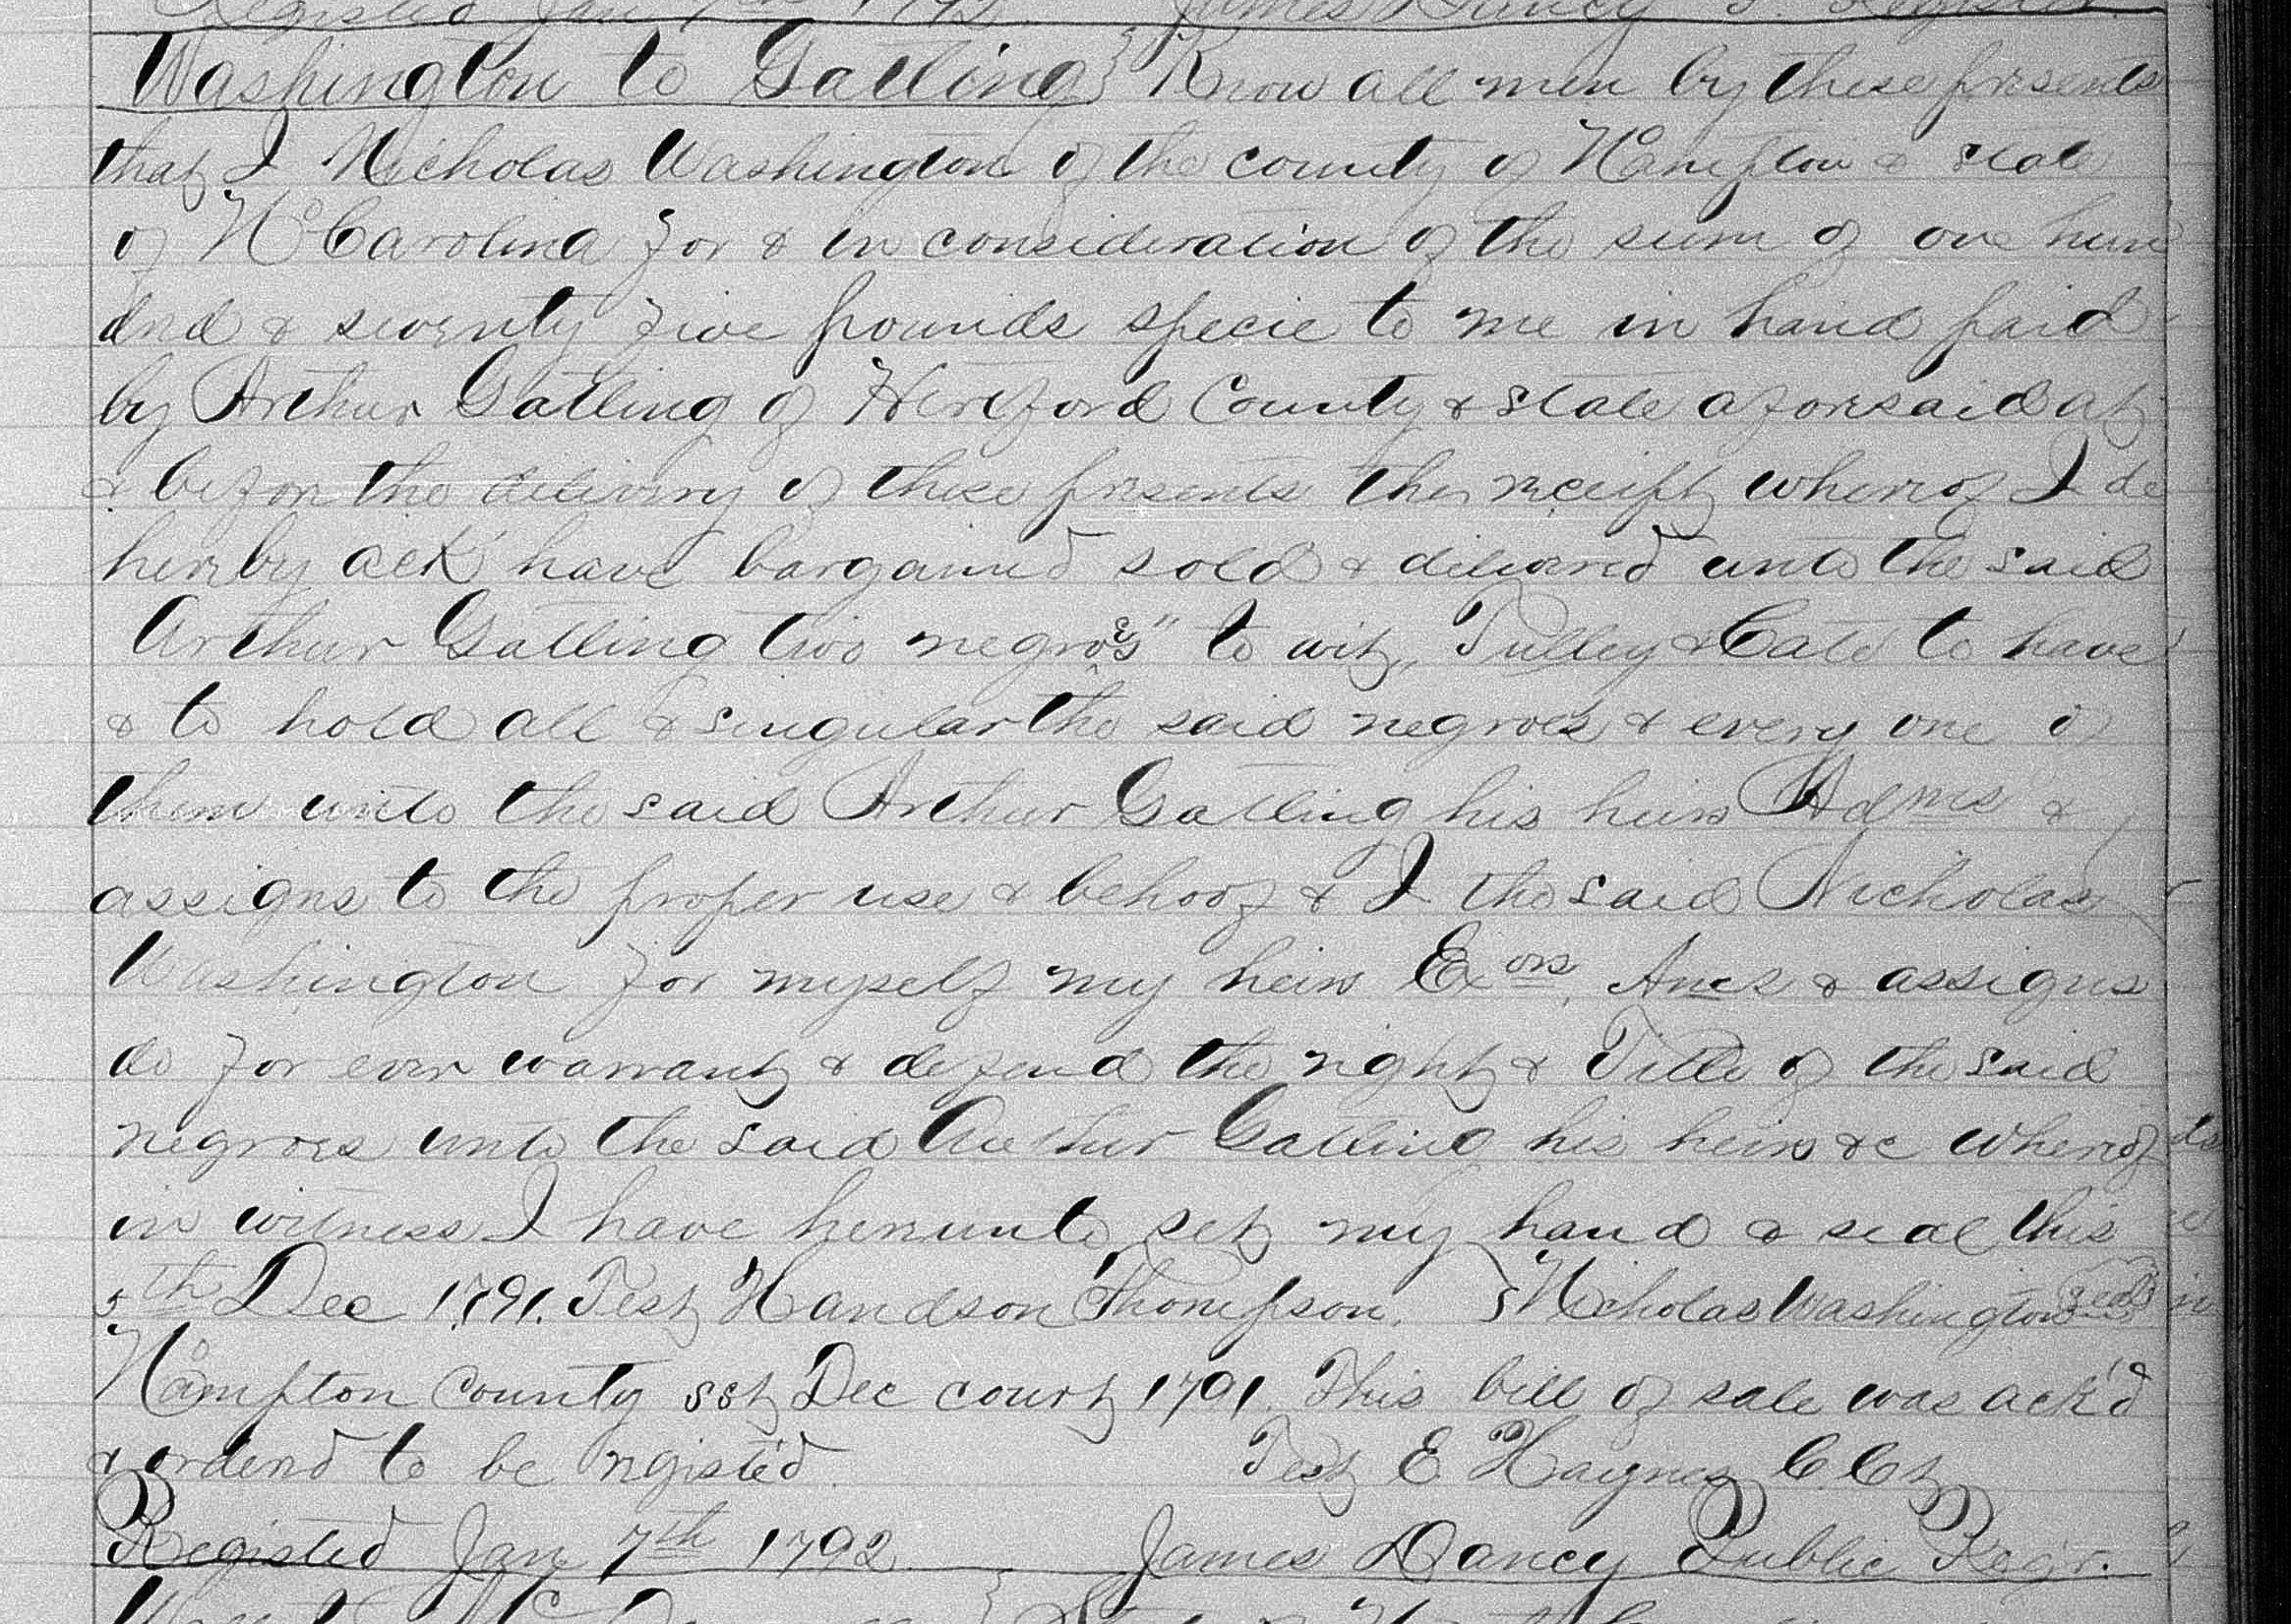 Registed Jan 7th 1792. James Dancy P. Register
Washington to Gatling } Know all men by these presents
that I Nicholas Washington of the county of N°hampton & state
of N°Carolina for & in consideration of the sum of one hun
dred & seventy five pounds specie to me in hand paid
by Arthur Gatling of Hertford County & state aforesaid at
& before the delivery of these presents the receipt whereof I do
hereby ack have bargained sold & delivered unto the said
Arthur Gatling two negroes" to wit, Tulley & Cato to have
& to hold all & singular the said negroes & every one of
them unto the said Arthur Gatling his heirs Adms &
assigns to the proper use & behoof & I the said Nicholas
Washington for myself my heirs Exors, Ams & assigns
do for ever warrant & defend the right & Title of the said
negroes unto the said Arthur Gatling his heirs &c whereof
in witness I have hereunto set my hand & seal this
5th Dec 1791. Test Handson Thompson. } Nicholas Washington seal
N°hampton County sst Dec court 1791. This bill of sale was ack'd
& orderd to be registe'd. Test E Haynes C Ct
Registed Jan 7th 1792 James Dancy Public Reg'r.